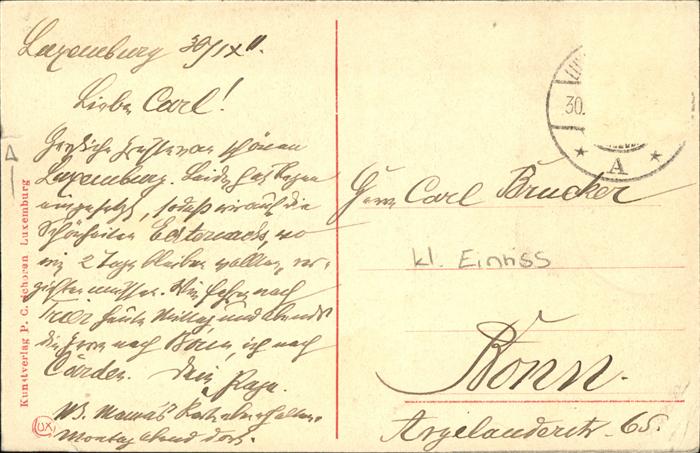 Luxemburg 30/IX 11.
Lieber Carl!
Herzliche Grüsse vom schönen
Luxemburg. Leider hat Regen
eingesetzt, sodaß wir auf die
Schönheiten Echternachs, wo
wir 2 Tage bleiben wollten, ver-
zichten müssen. Wir fahren nach
Trier heute Mittag und abends
die nach Bonn, ich nach
Cörden. Dein
NB. Mama's Karte erhalten.
Montag abend dort.
Kunstverlag P. C. Schoren, Luxemburg
30.
A
Herrn Carl Brucker
kl. Einriss
Bonn.
Argelanderstr. 65.